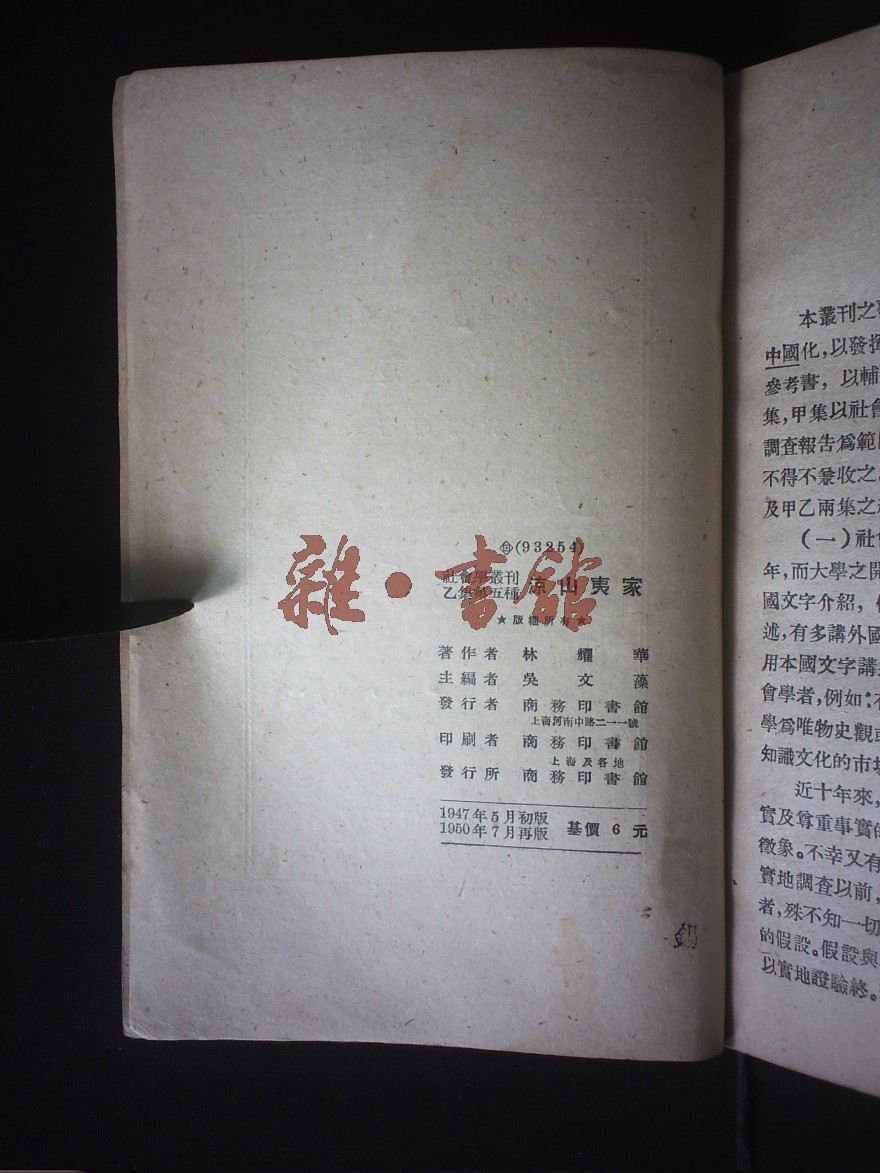 (93254)
社會學叢刊
乙集第五種
涼山夷家
★版權所有★
著作者 林耀華
主編者 吳文藻
發行者 商務印書館
上海河南中路二一一號
印刷者 商務印書館
上海及各地
發行所 商務印書館
1947年5月初版
1950年7月再版
基價 6 元
雜·書館
本叢刊之
中國化,以發揮
參考書,以輔
集,甲集以社會
調查報告爲範
不得不兼收之
及甲乙兩集之
(一)社
年,而大學之開
國文字介紹,
述,有多講外國
用本國文字講
會學者,例如:
學爲唯物史觀
知識文化的市
近十年來,
實及尊重事實的
徵象。不幸又有
實地調查以前,
者,殊不知一切
的假設。假設與
以實地證驗終。